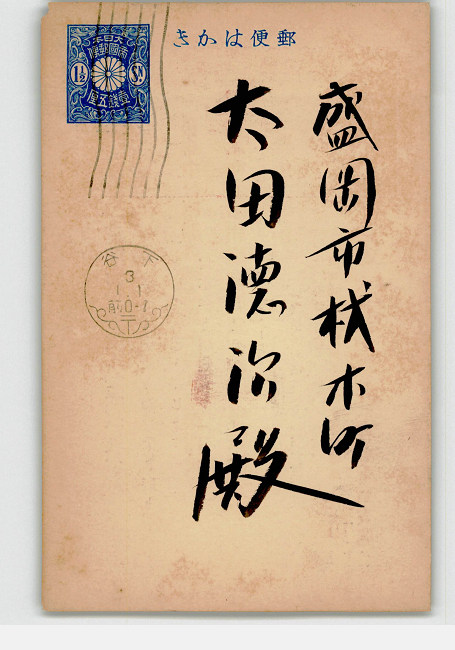 郵便はかき
大日本
帝國郵便
1½ Sn
壹錢五厘
盛岡市材木町
太田徳治殿
下谷
3
1.1
前0-7